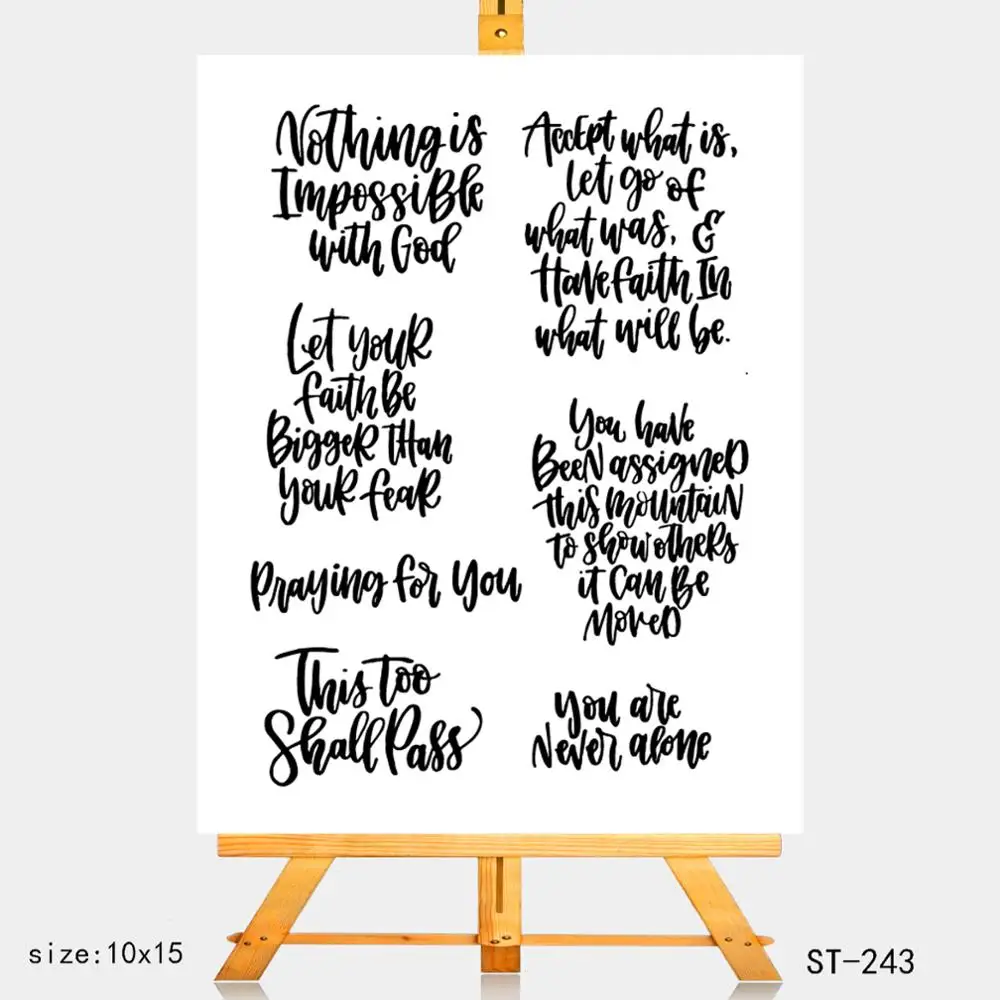 Nothing is
Impossible
with God
Let your
faith Be
Bigger than
your fear
Praying for you
This too
Shall Pass
Accept what is,
let go of
what was, &
Have faith In
what will be.
You have
Been assigned
this mountain
to show others
it can Be
Moved
you are
never alone
size:10x15
ST-243